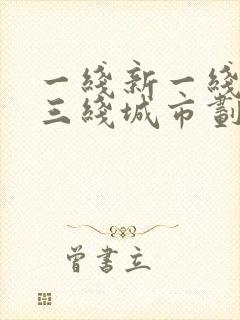 一綫新一綫
三綫城市劃
曾書立